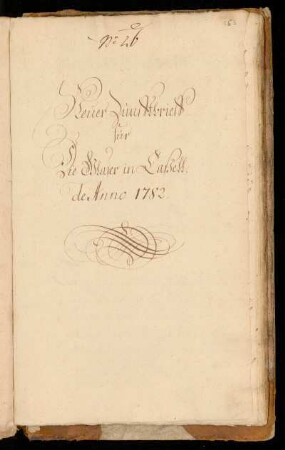 No 26
Neuer Zunftbrieff
für
Die Maler in Cassell
de Anno 1783.